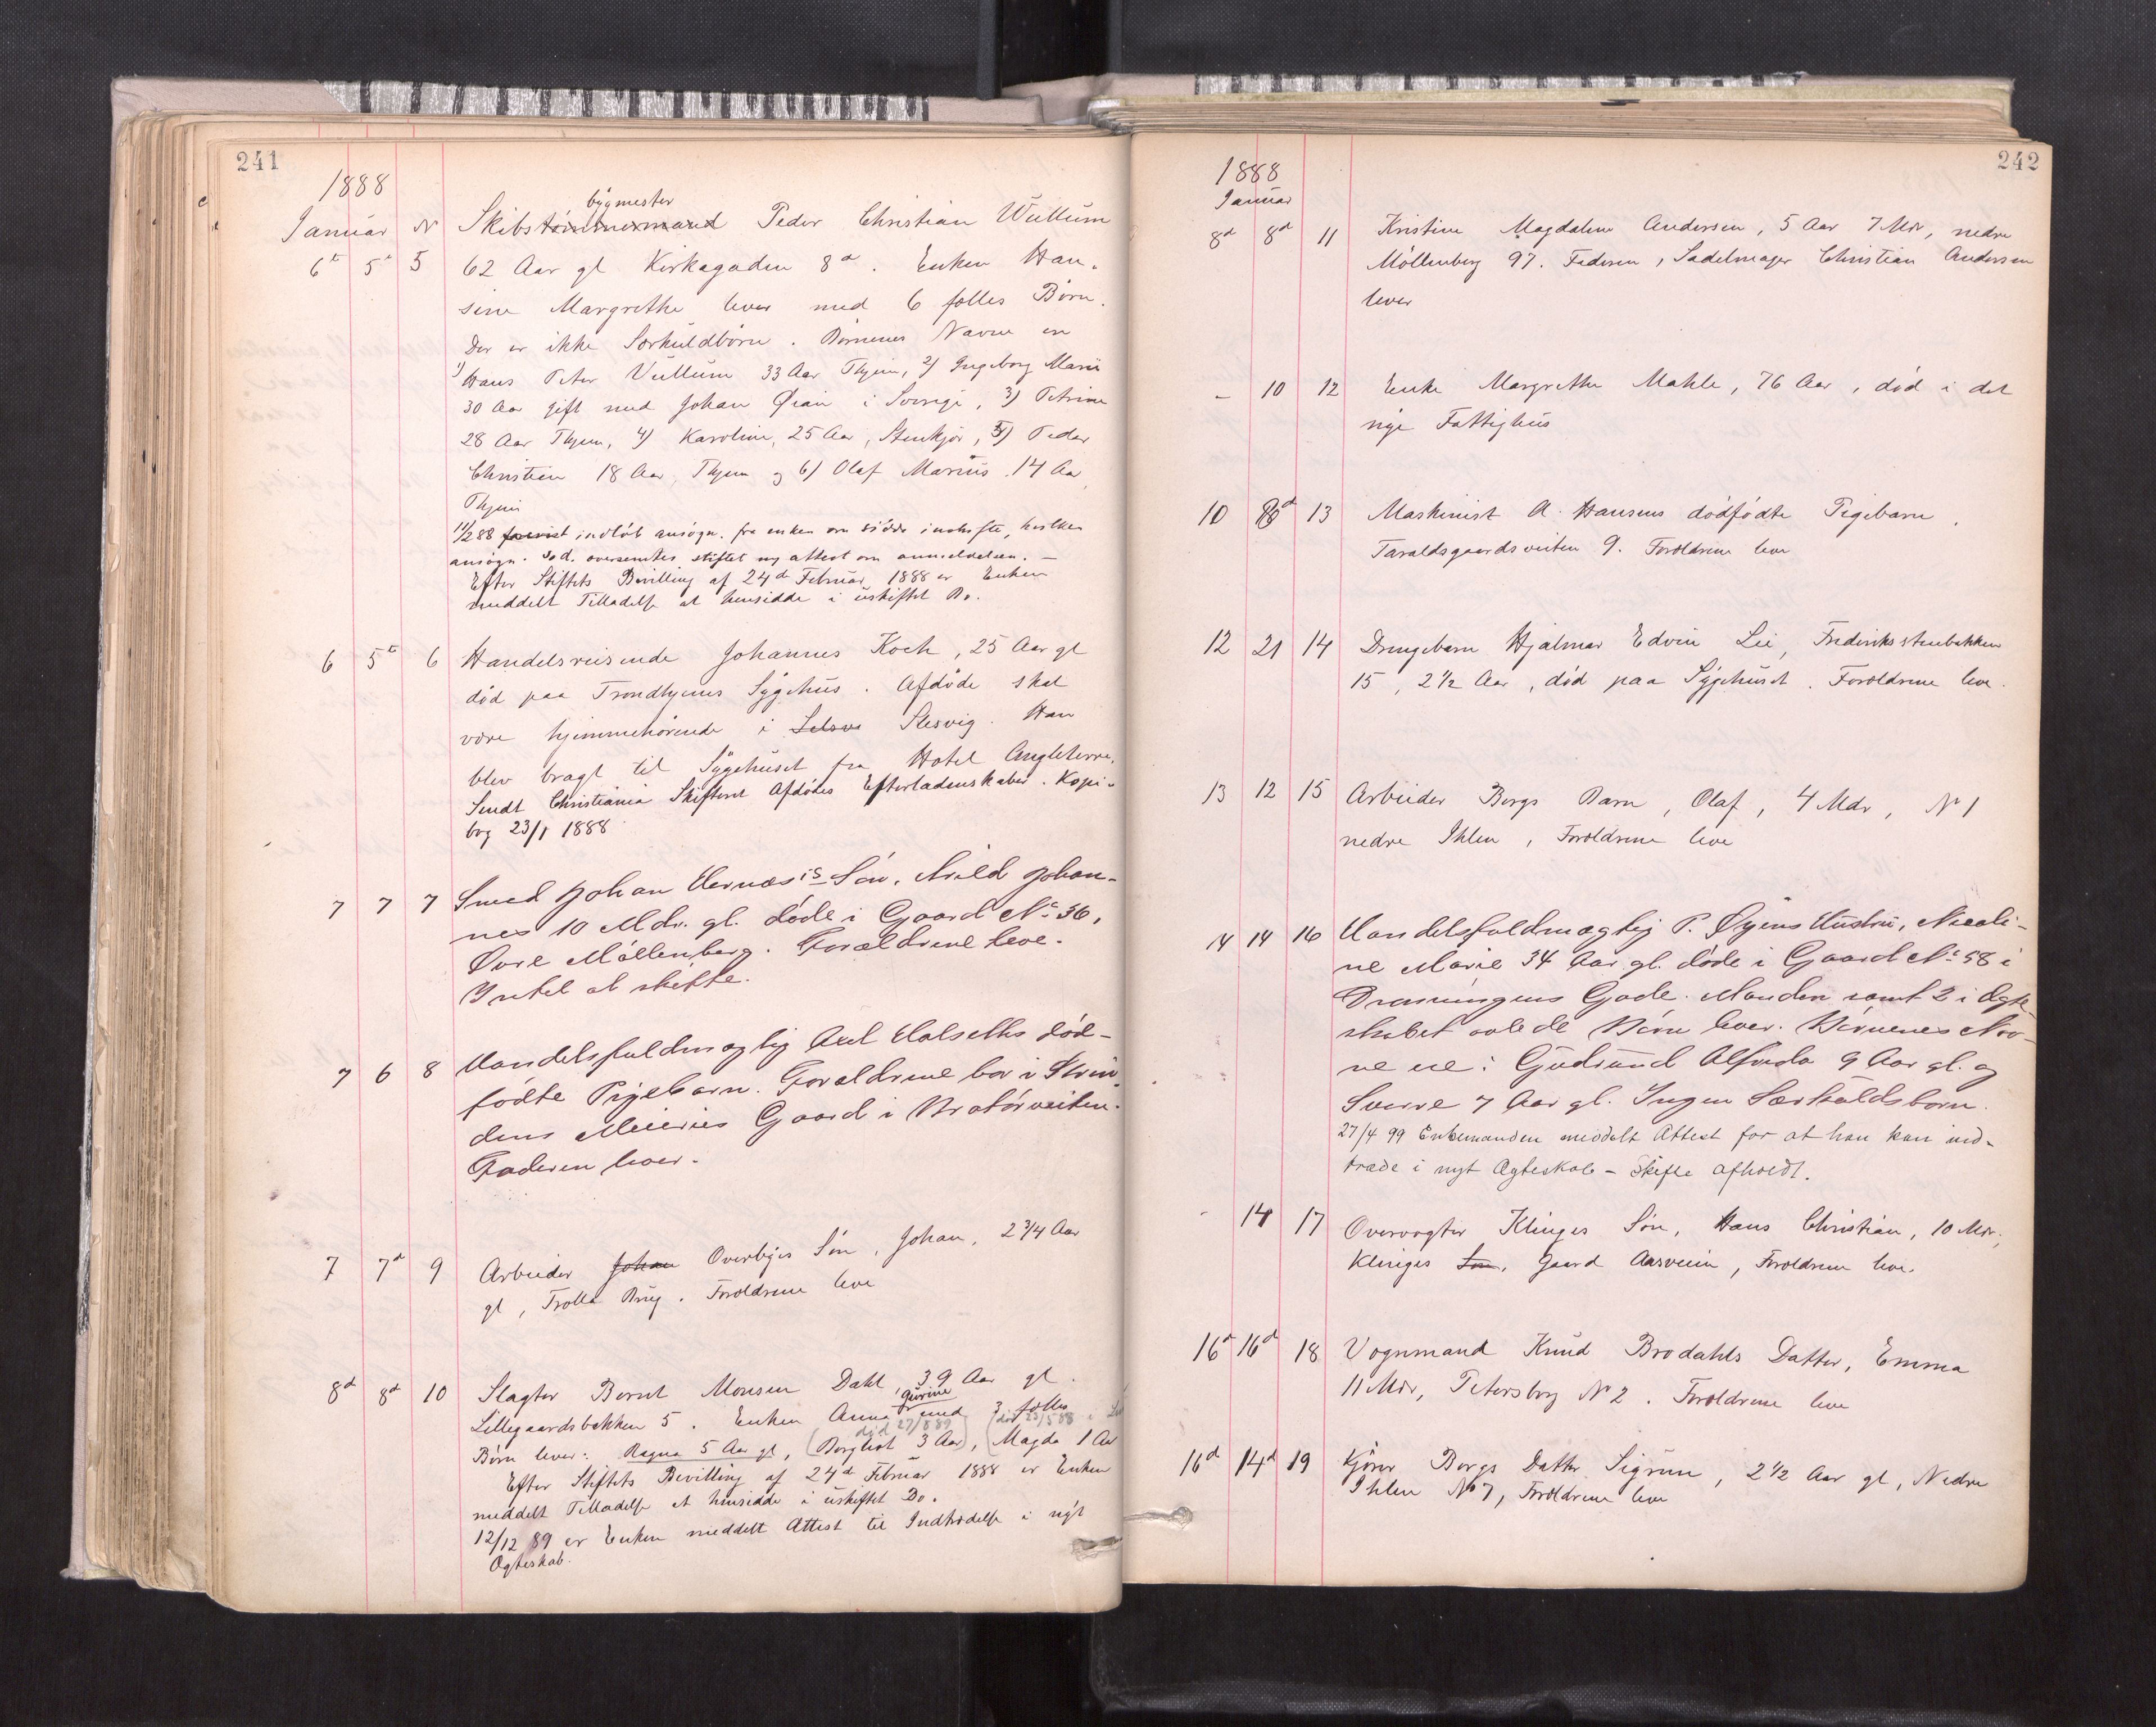 241
1888
bygmester
Januar N Skibstømmermand Peder Christian Wullum
6t 5t 5 62 Aar gl Kirkegaden 8a. Enken Han-
sine Margrethe lever med 6 fælles Børn.
Der er ikke Særkuldbørn. Børnenes Navne er
1) Hans Peter Vullum 33 Aar Thjem, 2) Ingeborg Marie
30 Aar gift med Johan Øian i Sverige, 3) Petrine
28 Aar Thjem, 4) Karoline, 25 Aar, Stenkjær, 5) Peder
Christian 18 Aar, Thjem og 6) Olaf Marius 14 Aar,
Thjem
11/2 88 indløb ansøgn. fra enken om sidde i uskifte, hvilken
ansøgn. s.d. oversendtes stiftet og attest om anmeldelsen. —
Efter Stiftets Bevilling af 24d Februar 1888 er Enken
meddelt Tilladelse at hensidde i uskiftet Bo.
6 5t 6 Handelsreisende Johannes Koch, 25 Aar gl
død paa Trondhjems Sygehus. Afdøde skal
være hjemmehørende i Slesvig. Han
blev bragt til Sygehuset fra Hotel Angleterre.
Sendt Christiania Skifteret Afdødes Efterladenskaber. Kopi-
bog 23/1 1888
7 7 7 Smed Johan Hernæs's Søn, Arild Johan-
nes 10 Mdr. gl. døde i Gaard No 36,
Øvre Møllenberg. Forældrene leve.
Intet at skifte.
7 6 8 Handelsfuldmægtig Axel Halseths død-
fødte Pigebarn. Forældrene bor i Strin-
dens Meieries Gaard i Bratørveiten.
Faderen lever.
7 7d 9 Arbeider Johan Overbyes Søn, Johan, 2 3/4 Aar
gl, Trolla Brug. Forældrene leve
8d 8d 10 Slagter Bernt Monsen Dahl, 39 Aar gl.
Gurine
Lillegaardsbakken 5. Enken Anna med 3 fælles
død 27/8 89 død 23/5 88
Børn lever: Ragna 5 Aar gl, (Borghild 3 Aar), (Magda 1 Aar
Efter Stiftets Bevilling af 24d Februar 1888 er Enken
meddelt Tilladelse at hensidde i uskiftet Bo.
12/12 89 er Enken meddelt Attest til Indtrædelse i nyt
Ægteskab.
242
1888
Januar
8d 8d 11 Kristine Magdalene Andersen, 5 Aar 7 Mdr, nedre
Møllenberg 97. Faderen, Sadelmager Christian Andersen
lever
– 10 12 Enke Margrethe Mahle, 76 Aar, død i det
nye Fattighus
10 8d 13 Maskinist A. Hansens dødfødte Pigebarn,
Taraldsgaardsveiten 9. Forældrene leve
12 21 14 Drengebarn Hjalmar Edvin Lie, Frederikstenbakken
15, 2 1/2 Aar, død paa Sygehuset. Forældrene leve.
13 12 15 Arbeider Bergs Barn, Olaf, 4 Mdr, No 1
nedre Ihlen, Forældrene leve
14 14 16 Handelsfuldmægtig P. Øyens Hustru, Nicoli-
ne Marie 34 Aar gl. døde i Gaard No 58 i
Dronningens Gade. Manden samt 2 i Ægte-
skabet avlede Børn lever. Børnenes Nav-
ne ere: Gudrund Alfreda 9 Aar gl. og
Sverre 7 Aar gl. Ingen Særkuldsbørn.
27/4 99 Enkemanden meddelt Attest for at han kan ind-
træde i nyt Ægteskab – Skifte afholdt.
- 14 17 Overvogter Klinges Søn, Hans Christian, 10 Mdr,
Klinges Søn, Gaard Aasveien, Forældrene leve.
16d 16d 18 Vognmand Knud Brodahls Datter, Emma
11 Mdr, Petersborg No 2. Forældrene leve
16d 14d 19 Kjører Bergs Datter Sigrun, 2 1/2 Aar gl, Nedre
Ihlen No 7, Forældrene leve